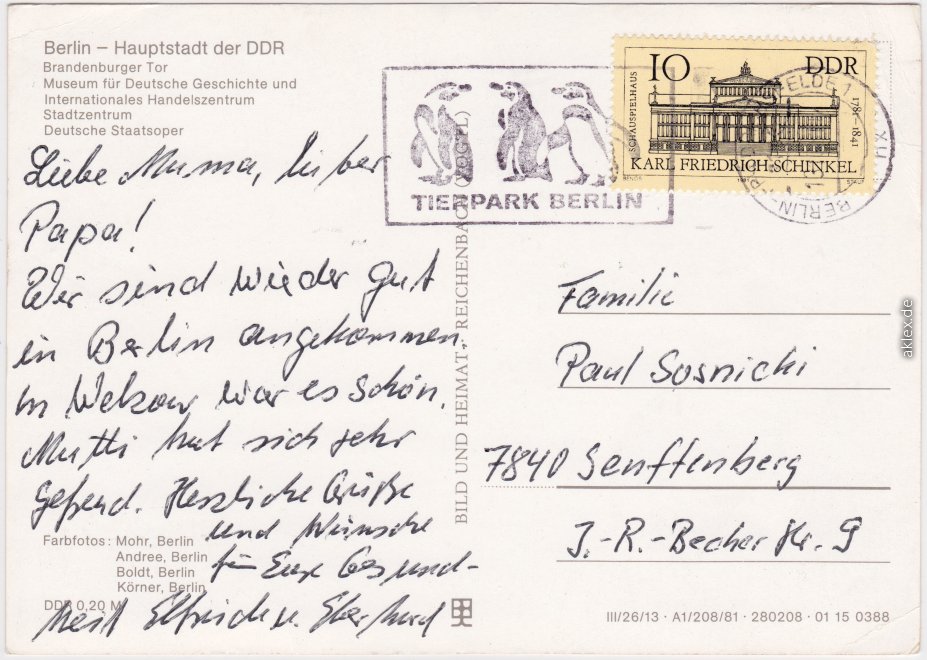 Berlin – Hauptstadt der DDR
Brandenburger Tor
Museum für Deutsche Geschichte und
Internationales Handelszentrum
Stadtzentrum
Deutsche Staatsoper
Liebe Mama, lieber
Papa!
Wir sind wieder gut
in Berlin angekommen.
In Welzow war es schön.
Mutti hat sich sehr
gefreut. Herzliche Grüße
und Wünsche
für Eure Gesund-
heit Elfriede u. Eberhard
Farbfotos: Mohr, Berlin
Andree, Berlin
Boldt, Berlin
Körner, Berlin
DDR 0,20 M
BILD UND HEIMAT, REICHENBACH (VOGTL)
TIERPARK BERLIN
10 DDR
SCHAUSPIELHAUS
1781–1841
KARL FRIEDRICH SCHINKEL
BERLIN-
Familie
Paul Sosnicki
7840 Senftenberg
J.-R.-Becher Str. 9
III/26/13 · A1/208/81 · 280208 · 01 15 0388
aklex.de